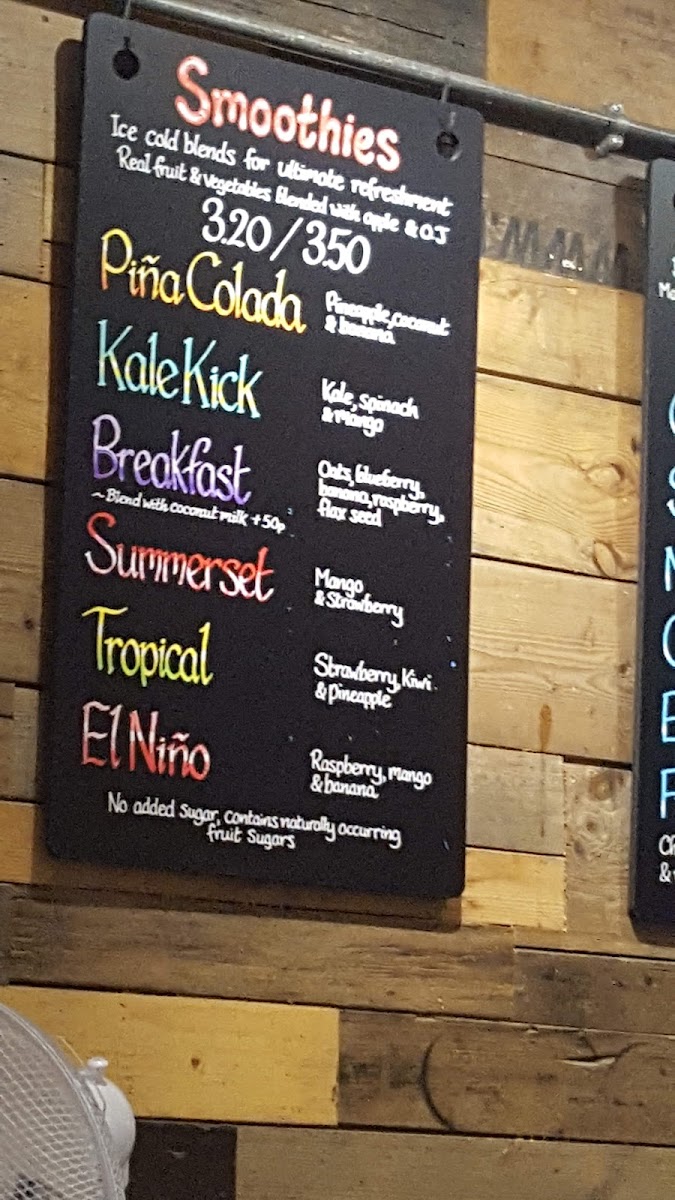 Smoothies
Ice cold blends for ultimate refreshment
Real fruit & vegetables blended with apple & O.J
3.20 / 3.50
Piña Colada
Pineapple, coconut
& banana
Kale Kick
Kale, spinach
& mango
Breakfast
~ Blend with coconut milk + 50p
Oats, blueberry,
banana, raspberry,
flax seed
Summerset
Mango
& Strawberry
Tropical
Strawberry, Kiwi
& pineapple
El Niño
Raspberry, mango
& banana
No added sugar, contains naturally occurring
fruit sugars